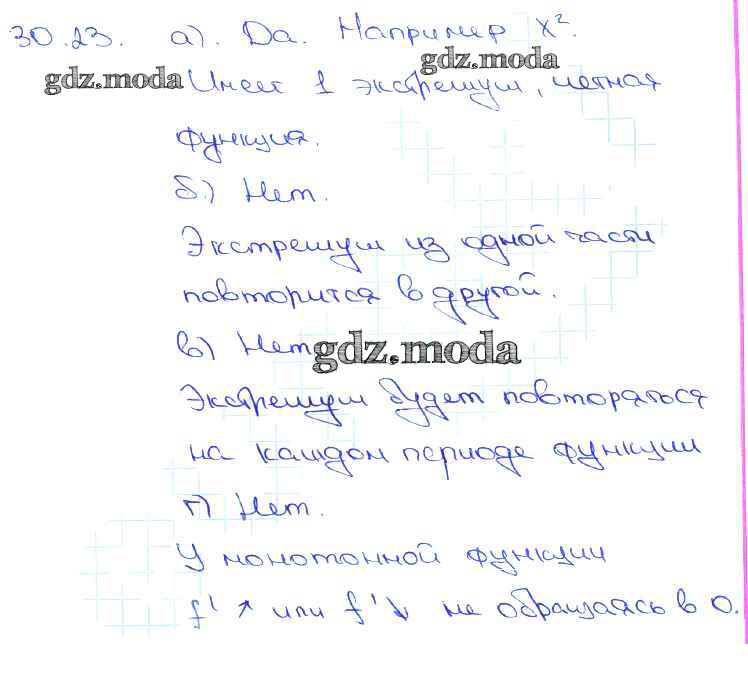 30.23. а). Да. Например x².
gdz.moda
gdz.moda Имеет 1 экстремум, четная
функция.
б.) Нет.
Экстремум из одной части
повторится в другой.
в) Нет
gdz.moda
Экстремум будет повторяться
на каждом периоде функции
г) Нет.
У монотонной функции
f' ↗ или f' ↘ не обращаясь в 0.